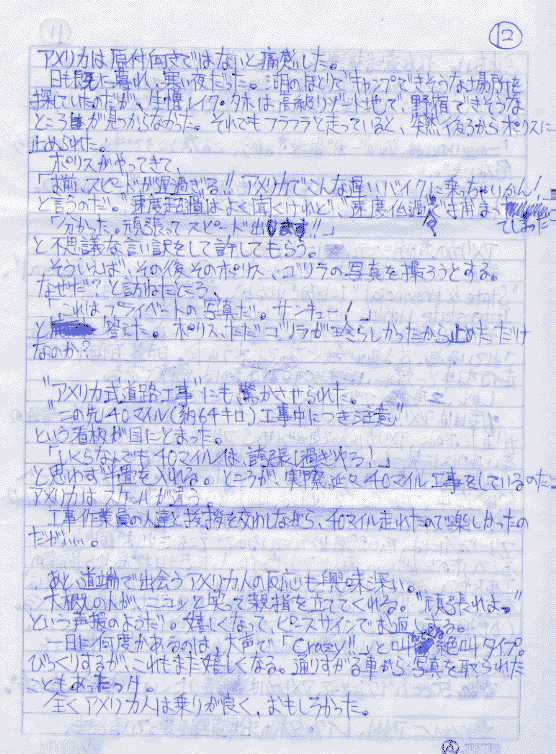 12
アメリカは原付向きではないと痛感した。
日も既に暮れ、寒い夜だった。湖のほとりでキャンプできそうな場所を
探していたのだが、生憎レイク・タホは高級リゾート地で、野宿できそうな
ところが見つからなかった。それでもフラフラと走っていると、突然後ろからポリスに
止められた。
ポリスがやってきて、
「お前、スピードが遅過ぎる!! アメリカでこんな遅いバイクに乗っちゃいかん!」
と言うのだ。"速度超過"はよく聞くけれど、"速度 过ぎ"で捕まって
しまった
「分かった。頑張ってスピード出します!!」
と不思議な言い訳をして許してもらう。
そういえば、その後そのポリス、ゴリラの写真を撮ろうとする。
なぜだ?と訪ねたところ、
「これはプライベートの写真だ。サンキュー!」
と答えた。ポリス、ただゴリラが珍らしかったから止めただけ
なのか?
"アメリカ式道路工事"にも驚かせられた。
"この先40マイル(約64キロ)工事中につき注意"
という看板が目にとまった。
「いくらなんでも40マイルは、誇張し過ぎやろ!」
と思わず半畳を入れる。ところが、実際延々40マイル工事をしているのだ…
アメリカはスケールが違う。
工事作業員の人達と挨拶を交わしながら、40マイル走れたので楽しかったの
だが……。
あと、道端で出会うアメリカ人の反応も興味深い。
大概の人が、ニコッと笑って親指を立ててくれる。"頑張れよっ"
という声援のようだ。嬉しくなって、ピースサインでお返しする。
一日に何度かあるのは、大声で「Crazy!!」と叫んでくる絶叫タイプ。
びっくりするが、これもまた嬉しくなる。通りすがる車から写真を取られた
こともあったっけ。
全くアメリカ人は乗りが良く、おもしろかった。